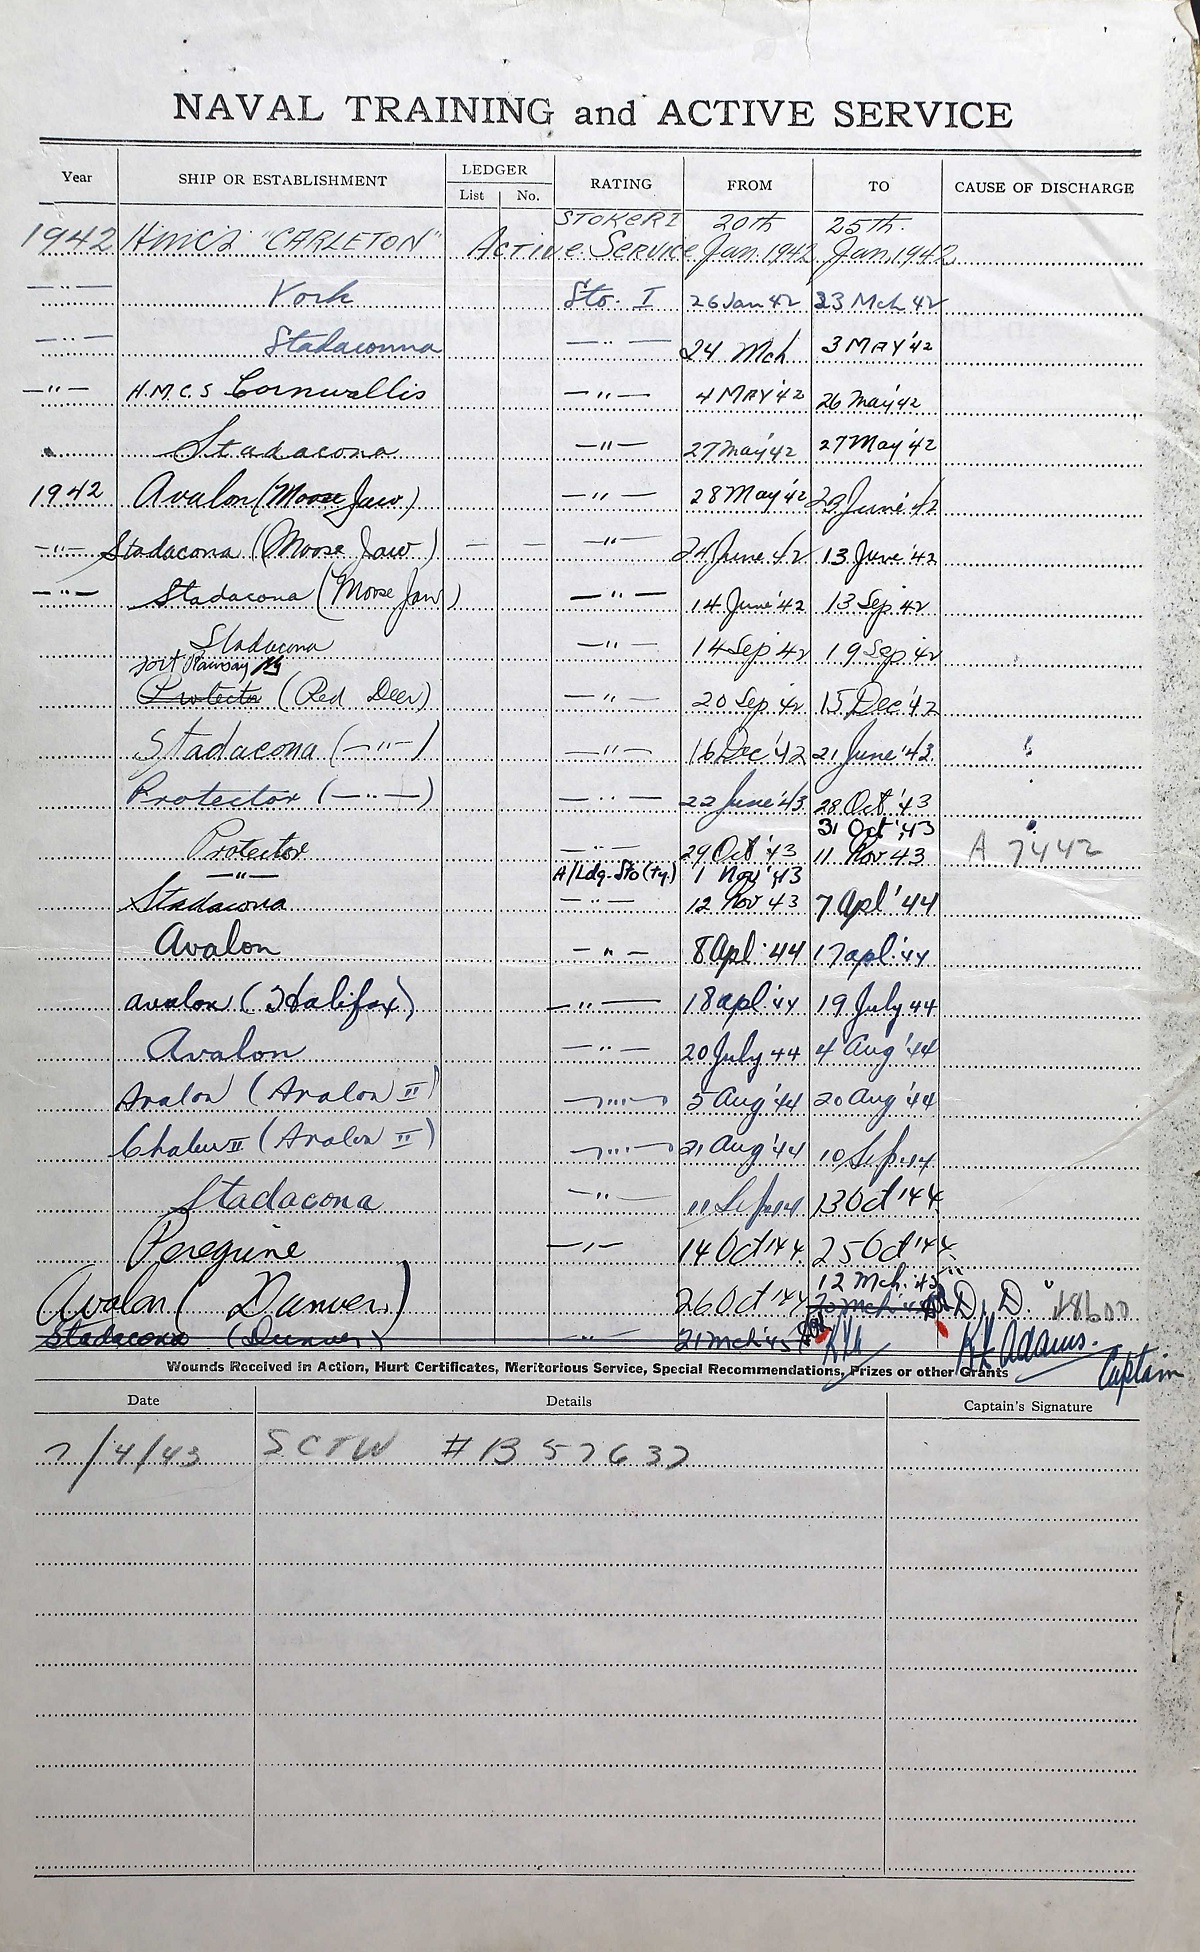 NAVAL TRAINING and ACTIVE SERVICE
Year SHIP OR ESTABLISHMENT LEDGER List No. RATING FROM TO CAUSE OF DISCHARGE
1942 HMCS "CARLETON" STOKER I Active Service 20th Jan. 1942 25th Jan. 1942
—"— York Sto. I 26 Jan 42 23 Mch 42
—"— Stadaconna —"— 24 Mch 3 MAY '42
—"— H.M.C.S Cornwallis —"— 4 MAY '42 26 May '42
Stadacona —"— 27 May '42 27 May '42
1942 Avalon (Moose Jaw) —"— 28 May '42 23 June '42
—"— Stadacona (Moose Jaw) — — —"— 24 June '42 13 June '42
—"— Stadacona (Moose Jaw) —"— 14 June '42 13 Sep 42
Stadacona —"— 14 Sep 42 19 Sep 42
Fort Ramsay
Protector (Red Deer) —"— 20 Sep 42 15 Dec '42
Stadacona (—"—) —"— 16 Dec '42 21 June '43
Protector (—"—) —"— 22 June '43 28 Oct '43
Protector —"— 29 Oct '43 31 Oct '43
—"— A/Ldg. Sto (ty.) 1 Nov '43 11 Nov 43 A 7442
Stadacona —"— 12 Nov 43 7 Apl '44
Avalon —"— 8 Apl '44 17 apl '44
avalon (Halifax) —"— 18 apl '44 19 July 44
Avalon —"— 20 July 44 4 Aug '44
Avalon (Avalon II) —"— 5 Aug '44 20 Aug '44
Chaleur II (Avalon II) —"— 21 Aug '44 10 Sep 44
Stadacona —"— 11 Sep 44 13 Oct '44
Peregrine —"— 14 Oct '44 25 Oct '44
Avalon (Dunver) 26 Oct '44 12 Mch. '45 20 Mch '45 "D.D." 48600
Stadacona (Dunver) —"— 21 Mch '45 KLA K L Adams. Captain
Wounds Received in Action, Hurt Certificates, Meritorious Service, Special Recommendations, Prizes or other Grants
Date Details Captain's Signature
7/4/43 SCTW # B 57637